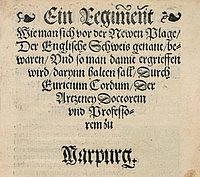 Ein Regiment
Wie man sich vor der Newen Plage/
Der Englische Schweis genant/ be-
waren/ Vnd so man damit ergrieffen
wird/ darynn halten sall/ Durch
Euricium Cordum/ Der
Artzeney Doctorem
vnd Professo-
rem zu
Marpurg.